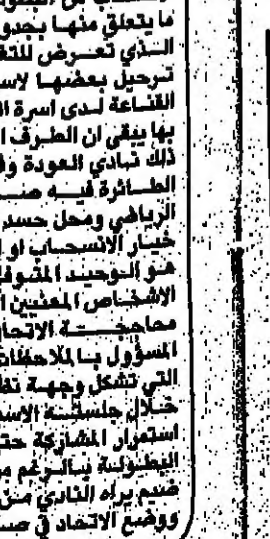 ما يتعلق منها بجدو
الذي تعرض للتق
ترحيل بعضها لاس
القناعة لدى اسرة ا
بها يبقى ان الطرف ا
ذلك نادي العودة وف
الطائرة فيه صم
الرياضي ومحل حسد
خيار الانسحاب او ا
هو الوحيد المتوفر
الاشخاص المعنيين ا
محاججة الاتحا
المسؤول بالملاحظات
التي تشكل وجهة نظ
خلال جلسته الاس
استمرار المشاركة حتى
البطولة بالرغم مر
ضيم يراه النادي من
ووضع الاتحاد في صـ